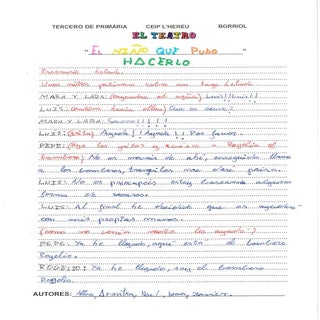 TERCERO DE PRIMÀRIA CEIP L'HEREU BORRIOL
EL TEATRO
"EL NIÑO QUE PUDO
HACERLO
Escenario helado.
Unos niños patinan sobre un lago helado
MARA Y LARA: al agua) Luis!! Luis!!
LUIS: ellas) Que os ocurre?
MARA Y LARA: Socorro!!!!!
LUIS: (grita) Ayuda! ¡Ayuda!! Por favor.
PEPE: (Oye los gritos y a Rogelio el
bombero) No os mováis de ahí, enseguida llamo
a los bomberos, tranquilos
LUIS: No os preocupéis estoy buscando alguna
forma de
LUIS: Al final he decidido que os ayudaré
con mis propias manos.
(como no venía nadie les ayudó)
PEPE: Ya he llegado, aquí está el bombero
Rogelio.
ROGELIO: Ya he llegado, soy el bombero
Rogelio.
AUTORES: Alba, Arantxa, Ivan, Xavier.